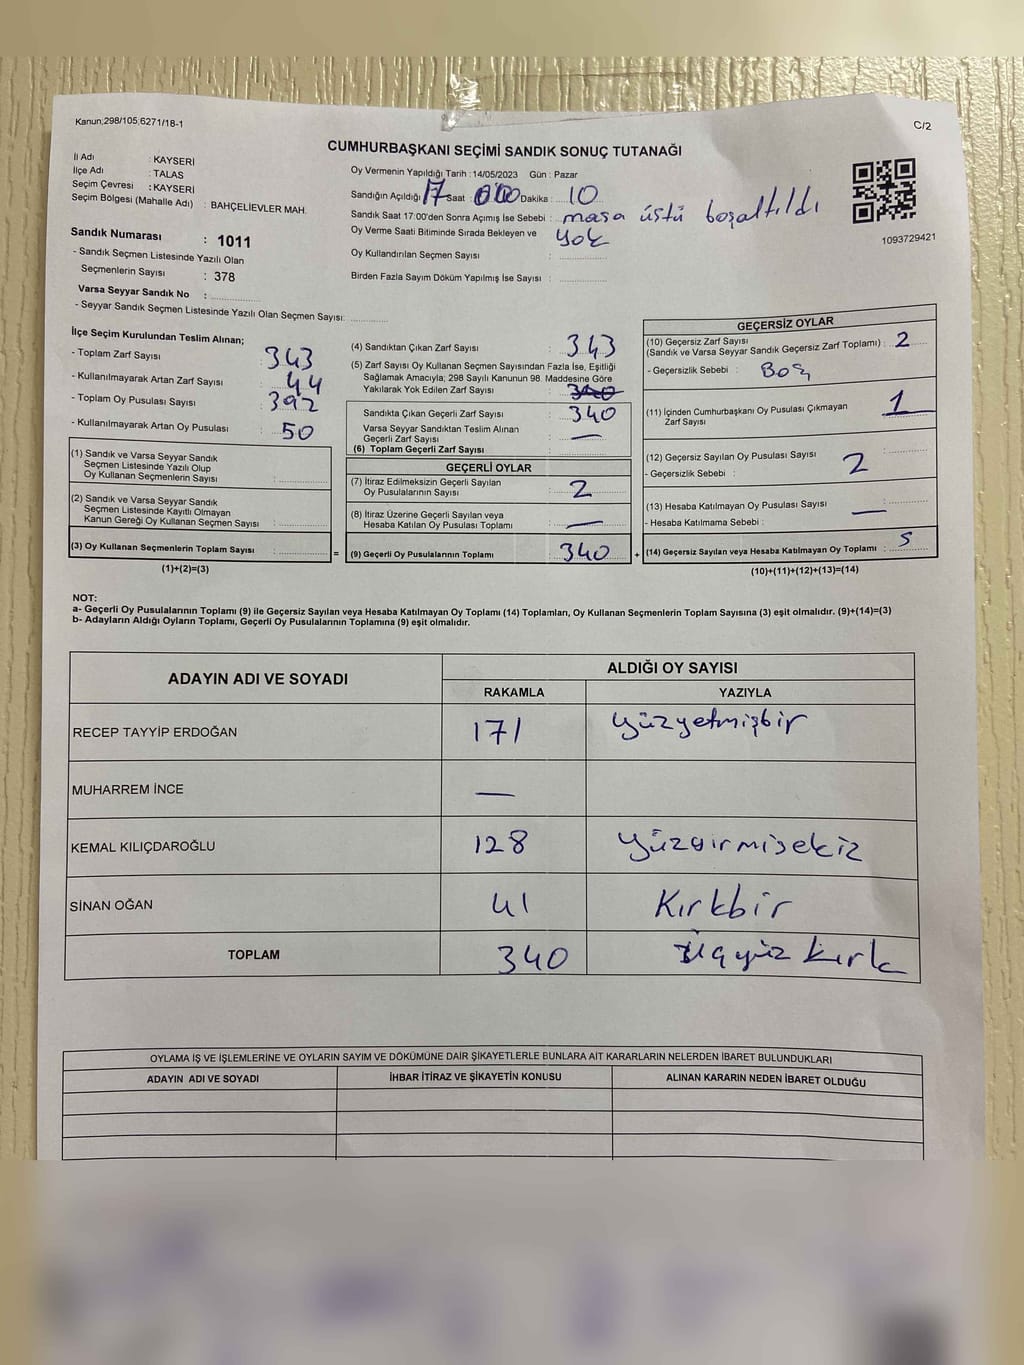 Kanun;298/105,6271/18-1
C/2
CUMHURBAŞKANI SEÇİMİ SANDIK SONUÇ TUTANAĞI
İl Adı : KAYSERİ
İlçe Adı : TALAS
Seçim Çevresi : KAYSERİ
Seçim Bölgesi (Mahalle Adı) : BAHÇELİEVLER MAH.
Sandık Numarası : 1011
- Sandık Seçmen Listesinde Yazılı Olan
Seçmenlerin Sayısı : 378
Varsa Seyyar Sandık No :
- Seyyar Sandık Seçmen Listesinde Yazılı Olan Seçmen Sayısı:
Oy Vermenin Yapıldığı Tarih : 14/05/2023 Gün : Pazar
Sandığın Açıldığı 17 Saat : 00 Dakika : 10
Sandık Saat 17:00'den Sonra Açımış İse Sebebi : masa üstü boşaltıldı
Oy Verme Saati Bitiminde Sırada Bekleyen ve yok
Oy Kullandırılan Seçmen Sayısı :
Birden Fazla Sayım Döküm Yapılmış İse Sayısı :
1093729421
İlçe Seçim Kurulundan Teslim Alınan;
- Toplam Zarf Sayısı 343
- Kullanılmayarak Artan Zarf Sayısı : 44
- Toplam Oy Pusulası Sayısı : 392
- Kullanılmayarak Artan Oy Pusulası : 50
(1) Sandık ve Varsa Seyyar Sandık
Seçmen Listesinde Yazılı Olup
Oy Kullanan Seçmenlerin Sayısı :
(2) Sandık ve Varsa Seyyar Sandık
Seçmen Listesinde Kayıtlı Olmayan
Kanun Gereği Oy Kullanan Seçmen Sayısı :
(3) Oy Kullanan Seçmenlerin Toplam Sayısı : =
(1)+(2)=(3)
(4) Sandıktan Çıkan Zarf Sayısı : 343
(5) Zarf Sayısı Oy Kullanan Seçmen Sayısından Fazla İse, Eşitliği
Sağlamak Amacıyla; 298 Sayılı Kanunun 98. Maddesine Göre
Yakılarak Yok Edilen Zarf Sayısı : 340
Sandıkta Çıkan Geçerli Zarf Sayısı : 340
Varsa Seyyar Sandıktan Teslim Alınan
Geçerli Zarf Sayısı : —
(6) Toplam Geçerli Zarf Sayısı :
GEÇERLİ OYLAR
(7) İtiraz Edilmeksizin Geçerli Sayılan
Oy Pusulalarının Sayısı : 2
(8) İtiraz Üzerine Geçerli Sayılan veya
Hesaba Katılan Oy Pusulası Toplamı : —
(9) Geçerli Oy Pusulalarının Toplamı : 340 +
GEÇERSİZ OYLAR
(10) Geçersiz Zarf Sayısı
(Sandık ve Varsa Seyyar Sandık Geçersiz Zarf Toplamı) : 2
- Geçersizlik Sebebi : Boş
(11) İçinden Cumhurbaşkanı Oy Pusulası Çıkmayan 1
Zarf Sayısı
(12) Geçersiz Sayılan Oy Pusulası Sayısı : 2
- Geçersizlik Sebebi :
(13) Hesaba Katılmayan Oy Pusulası Sayısı : —
- Hesaba Katılmama Sebebi :
(14) Geçersiz Sayılan veya Hesaba Katılmayan Oy Toplamı : 5
(10)+(11)+(12)+(13)=(14)
NOT:
a- Geçerli Oy Pusulalarının Toplamı (9) ile Geçersiz Sayılan veya Hesaba Katılmayan Oy Toplamı (14) Toplamları, Oy Kullanan Seçmenlerin Toplam Sayısına (3) eşit olmalıdır. (9)+(14)=(3)
b- Adayların Aldığı Oyların Toplamı, Geçerli Oy Pusulalarının Toplamına (9) eşit olmalıdır.
ADAYIN ADI VE SOYADI ALDIĞI OY SAYISI
RAKAMLA YAZIYLA
RECEP TAYYİP ERDOĞAN 171 yüzyetmişbir
MUHARREM İNCE —
KEMAL KILIÇDAROĞLU 128 yüzyirmisekiz
SİNAN OĞAN 41 Kırkbir
TOPLAM 340 üçyüz kırk
OYLAMA İŞ VE İŞLEMLERİNE VE OYLARIN SAYIM VE DÖKÜMÜNE DAİR ŞİKAYETLERLE BUNLARA AİT KARARLARIN NELERDEN İBARET BULUNDUKLARI
ADAYIN ADI VE SOYADI İHBAR İTİRAZ VE ŞİKAYETİN KONUSU ALINAN KARARIN NEDEN İBARET OLDUĞU